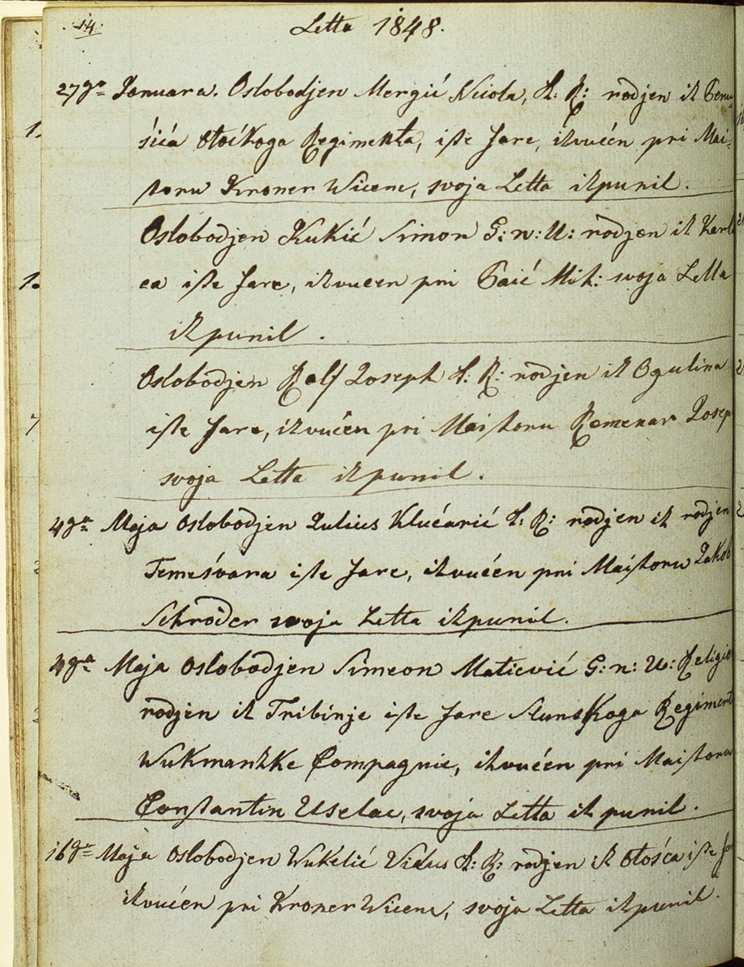 14.
Letta 1848.
27ga Januara. Oslobodjen Mergić Nicola, K: R: rodjen iz Peru
śića Otoćkoga Regimenta, iste Jare, izvućen pri Mai-
storu Kroner Vicene, svoja Letta izpunil.
Oslobodjen Kukić Simon G: n: U: rodjen iz Karl
ca iste Jare, izvucen pri Paić Mik: svoja Letta
izpunil.
Oslobodjen Rolf Joseph K: R: rodjen iz Ogulina
iste Jare, izvućen pri Maistoru Remenar Josep
svoja Letta izpunil.
4ga Maja Oslobodjen Julius Klućarić K: R: rodjen iz rodjen
Temeśvara iste Jare, izvućen pri Maistoru Jakob
Schröder svoja Letta izpunil.
4ga Maja Oslobodjen Simeon Matiević G: n: U: Religio
rodjen iz Tribinje iste Jare Slunskoga Regiment
Wukmanzke Compagnie, izvućen pri Maistoru
Constantin Uselac, svoja Letta iz punil.
16ga Maja Oslobodjen Wukelić Vidus K: R: rodjen iz Otośca iste Ja
izvućen pri Kroner Vicene, svoja Letta izpunil.